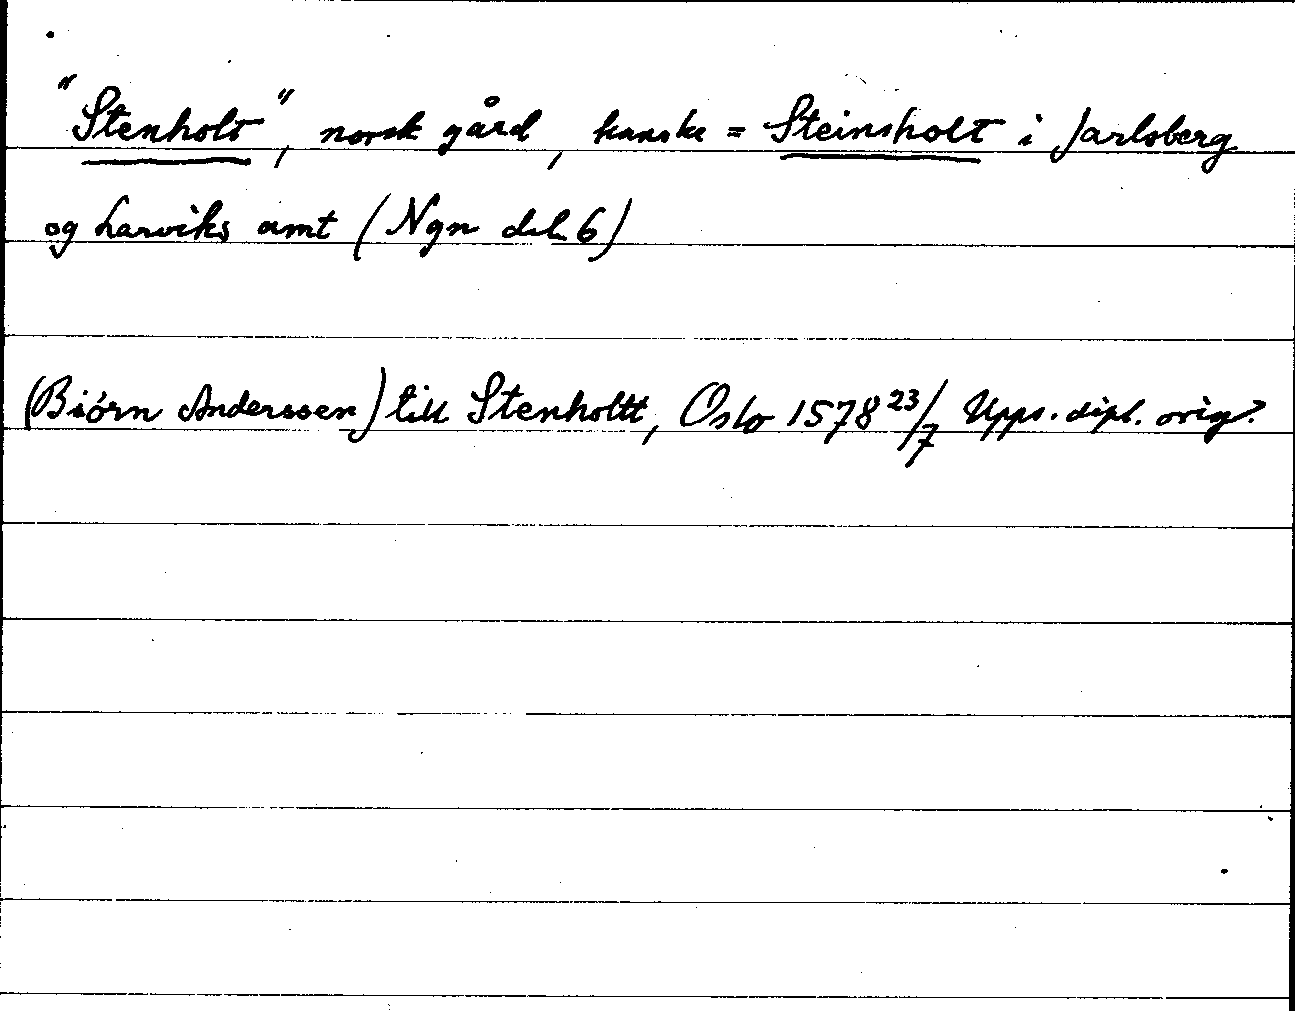 "Stenholt", norsk gård, kanske = Steinsholt i Jarlsberg
og Larviks amt (Ngn del 6)
(Biórn Anderssen) till Stenholtt, Oslo 1578 23/7 Upps. dipl. orig.